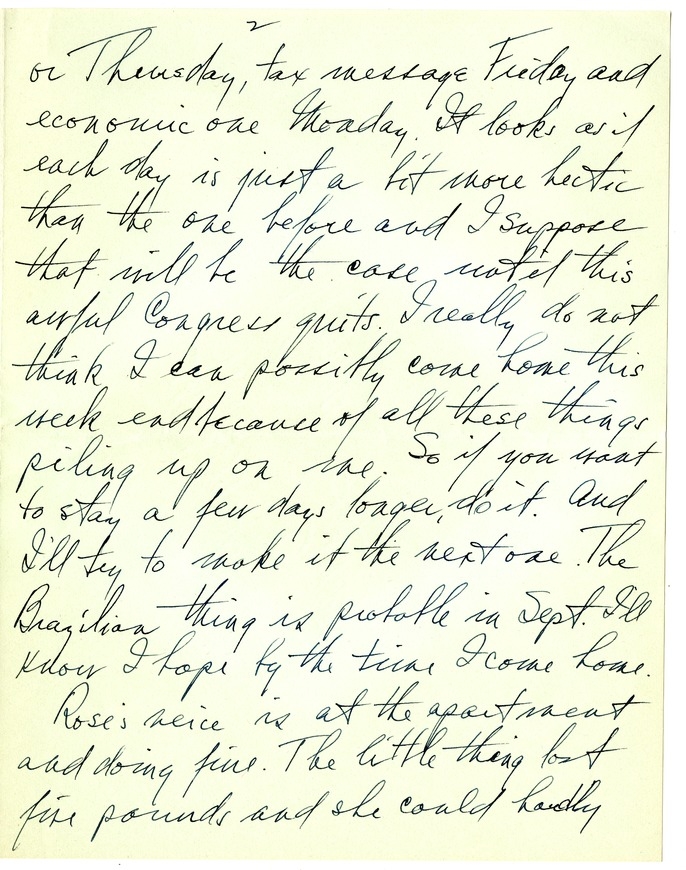 2
or Thursday, tax message Friday and
economic one Monday. It looks as if
each day is just a bit more hectic
than the one before and I suppose
that will be the case until this
awful Congress quits. I really do not
think I can possibly come home this
week end because of all these things
piling up on me. So if you want
to stay a few days longer, do it. And
I'll try to make it the next one. The
Brazilian thing is probable in Sept. I'll
know I hope by the time I come home.
Rose's neice is at the apartment
and doing fine. The little thing lost
five pounds and she could hardly